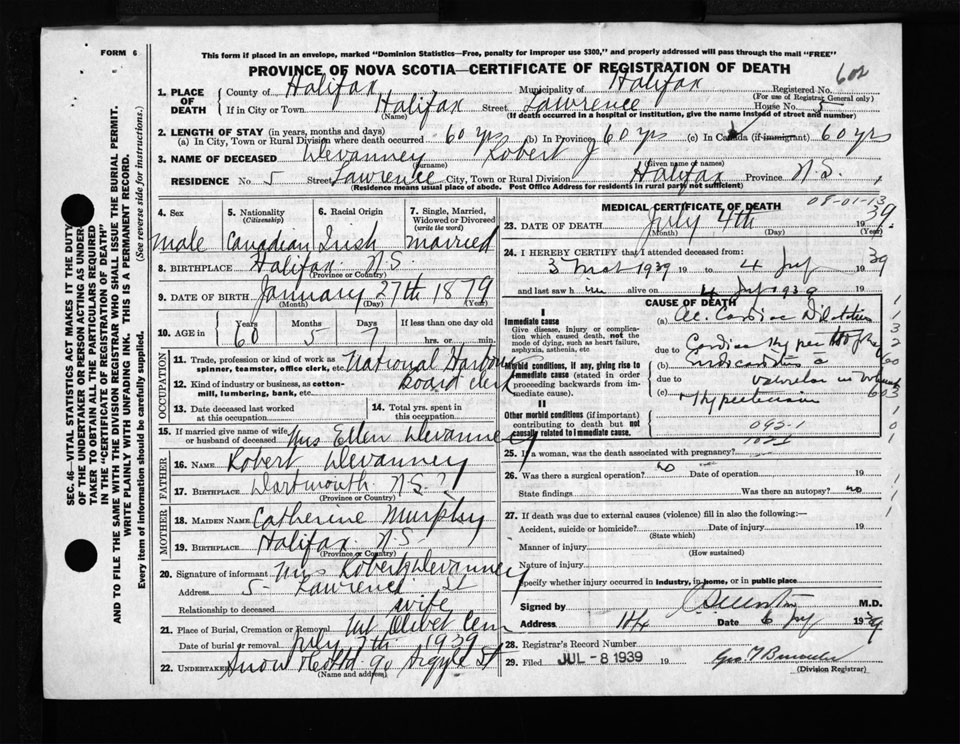 FORM 6
This form if placed in an envelope, marked "Dominion Statistics—Free, penalty for improper use $300," and properly addressed will pass through the mail "FREE"
PROVINCE OF NOVA SCOTIA—CERTIFICATE OF REGISTRATION OF DEATH
602
1. PLACE OF DEATH
County of Halifax Municipality of Halifax Registered No.
(For use of Registrar General only)
If in City or Town Halifax Street Lawrence House No. 5
(Name) (If death occurred in a hospital or institution, give the name instead of street and number)
2. LENGTH OF STAY (in years, months and days)
(a) In City, Town or Rural Division where death occurred 60 yrs (b) In Province 60 yrs (c) In Canada (if immigrant) 60 yrs
3. NAME OF DECEASED Devanney Robert J
(Surname) (Given name or names)
RESIDENCE No. 5 Street Lawrence City, Town or Rural Division Halifax Province N.S.
(Residence means usual place of abode. Post Office Address for residents in rural part not sufficient)
SEC. 46—VITAL STATISTICS ACT MAKES IT THE DUTY
OF THE UNDERTAKER OR PERSON ACTING AS UNDER-
TAKER TO OBTAIN ALL THE PARTICULARS REQUIRED
IN THE "CERTIFICATE OF REGISTRATION OF DEATH"
AND TO FILE THE SAME WITH THE DIVISION REGISTRAR WHO SHALL ISSUE THE BURIAL PERMIT.
WRITE PLAINLY WITH UNFADING INK. THIS IS A PERMANENT RECORD.
Every item of information should be carefully supplied. (See reverse side for instructions.)
4. Sex
Male
5. Nationality
(Citizenship)
Canadian
6. Racial Origin
Irish
7. Single, Married, Widowed or Divorced
(write the word)
Married
8. BIRTHPLACE Halifax N.S.
(Province or Country)
9. DATE OF BIRTH January 27th 1879
(Month) (Day) (Year)
10. AGE in
Years Months Days If less than one day old
60 5 7 hrs. or min.
OCCUPATION
11. Trade, profession or kind of work as spinner, teamster, office clerk, etc. National Harbour
12. Kind of industry or business, as cotton-mill, lumbering, bank, etc. Board Clerk
13. Date deceased last worked at this occupation
14. Total yrs. spent in this occupation
15. If married give name of wife or husband of deceased Mrs Ellen Devanney
FATHER
16. NAME Robert Devanney
17. BIRTHPLACE Dartmouth N.S.?
(Province or Country)
MOTHER
18. MAIDEN NAME Catherine Murphy
19. BIRTHPLACE Halifax N.S.
(Province or Country)
20. Signature of informant Mrs Robert Devanney
Address 5 Lawrence St
Relationship to deceased wife
21. Place of Burial, Cremation or Removal Mt Olivet Cem
Date of burial or removal July 1939
22. Undertaker Snow 90 Argyle St
(Name and address)
MEDICAL CERTIFICATE OF DEATH
08-01-13
23. DATE OF DEATH July 4th 1939
(Month) (Day) (Year)
24. I HEREBY CERTIFY that I attended deceased from:
3 1939 19 to 4 July 1939
and last saw h im alive on 4 July 1939 19
CAUSE OF DEATH
I
Immediate cause
Give disease, injury or complication which caused death, not the mode of dying, such as heart failure, asphyxia, asthenia, etc.
Morbid conditions, if any, giving rise to immediate cause (stated in order proceeding backwards from immediate cause).
II
Other morbid conditions (if important) contributing to death but not causally related to immediate cause.
(a) Ac. Cardiac Dilatation
due to Cardiac Hypertrophy
(b) Myocarditis
due to valvular
(c) Hypertension
092-1
25. If a woman, was the death associated with pregnancy?
26. Was there a surgical operation? no Date of operation 19
State findings Was there an autopsy? no
27. If death was due to external causes (violence) fill in also the following:—
Accident, suicide or homicide? Date of injury 19
(State which)
Manner of injury
(How sustained)
Nature of injury
Specify whether injury occurred in industry, in home, or in public place
Signed by M.D.
Address Date 6 July 1939
28. Registrar's Record Number
29. Filed JUL -8 1939 19
(Division Registrar)